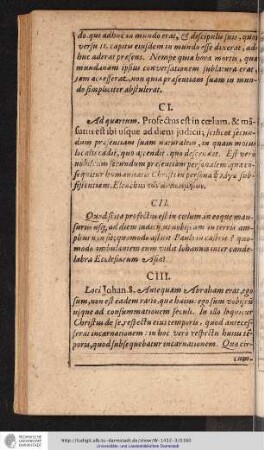 do. quæ adhuc in mundo erat, & discipulis suis, quos
versu 11. capitu ejusdem in mundo esse dixerat, ad-
huc aderat præsens. Nempe quia hora mortis, quæ
mundanam ipsius conversationem sublatura erat,
jam accesserat, non quia præsentiam suam in mun-
do simpliciter abstulerat.
CI.
Ad quartum. Profectus est in cœlum, & mã-
surus est ibi usque ad diem judicii; scilicet secun-
dum præsentiam suam naturalem, in quam motus
hic accedit, quo ascendit, quo descendit. Est vero
nobiscum secundum præsentiam personalem, quæ co-
sequitur humanitatis Christi in persona λόγῳ sub-
sistentiam. Elenchus
CII.
Quod si ita profectus est in cœlum, in eoque man-
surus usq; ad diem judicii, ut nobiscum in terris am-
plius non sit, quomodo astitit Paulo in castris? quo-
modo ambulantem eum vidit Iohannes inter cande-
labra Ecclesiarum Asiæ?
CIII.
Loci Johan. 8. Antequam Abraham erat, ego
sum, non est eadem ratio, quæ hujus: ego sum vobiscũ
usque ad consummationem seculi. In illo loquitur
Christus de se, respectu ejus temporis, quod antecess-
serat incarnationem: in hoc vero respectu hujus tẽ-
poris, quod subsequebatur incarnationem. Quæ cir-
cum-
http://tudigit.ulb.tu-darmstadt.de/show/W-1432-3/0360
Universitäts- und Landesbibliothek Darmstadt